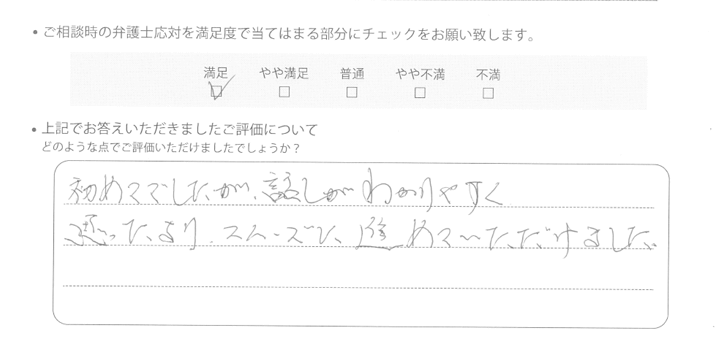 ・ご相談時の弁護士応対を満足度で当てはまる部分にチェックをお願い致します。
満足 やや満足 普通 やや不満 不満
・上記でお答えいただきましたご評価について
どのような点でご評価いただけましたでしょうか？
初めてでしたが、話しがわかりやすく
思ったより、スムーズに、進めていただけました。